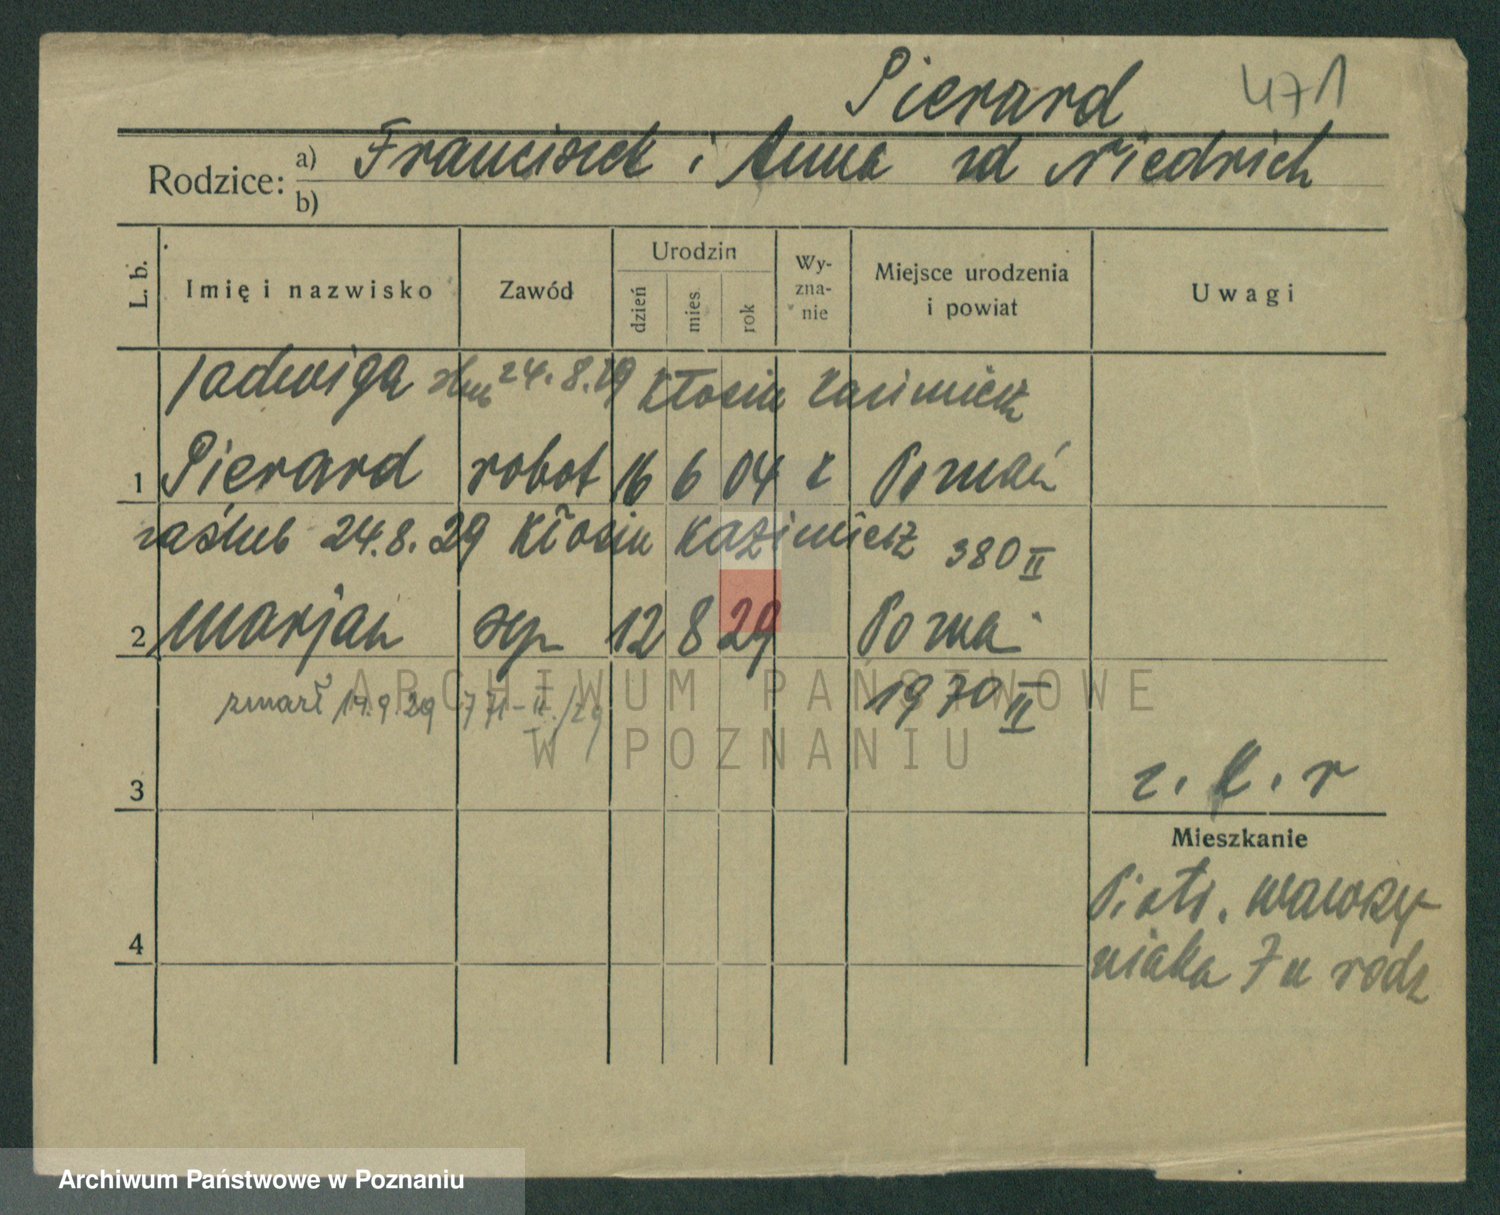 Pierard 471
Rodzice: a) Franciszek i Anna zd Niedrich
b)
L. b. Imię i nazwisko Zawód Urodzin dzień mies. rok Wy-zna-nie Miejsce urodzenia i powiat Uwagi
Jadwiga ślub 24.8.29 Kłosin Kazimierz
1 Pierard robot 16 6 04 k Poznań
zaślub 24.8.29 Kłosin Kazimierz 380 II
2 Marjan syn 12 8 29 Pozna
zmarł 17.9.29 771-II/29 1970 II
ARCHIWUM PAŃSTWOWE
W POZNANIU
3 r
Mieszkanie
Piotr. Wawrzy-
4 niaka 7 u rodz
Archiwum Państwowe w Poznaniu